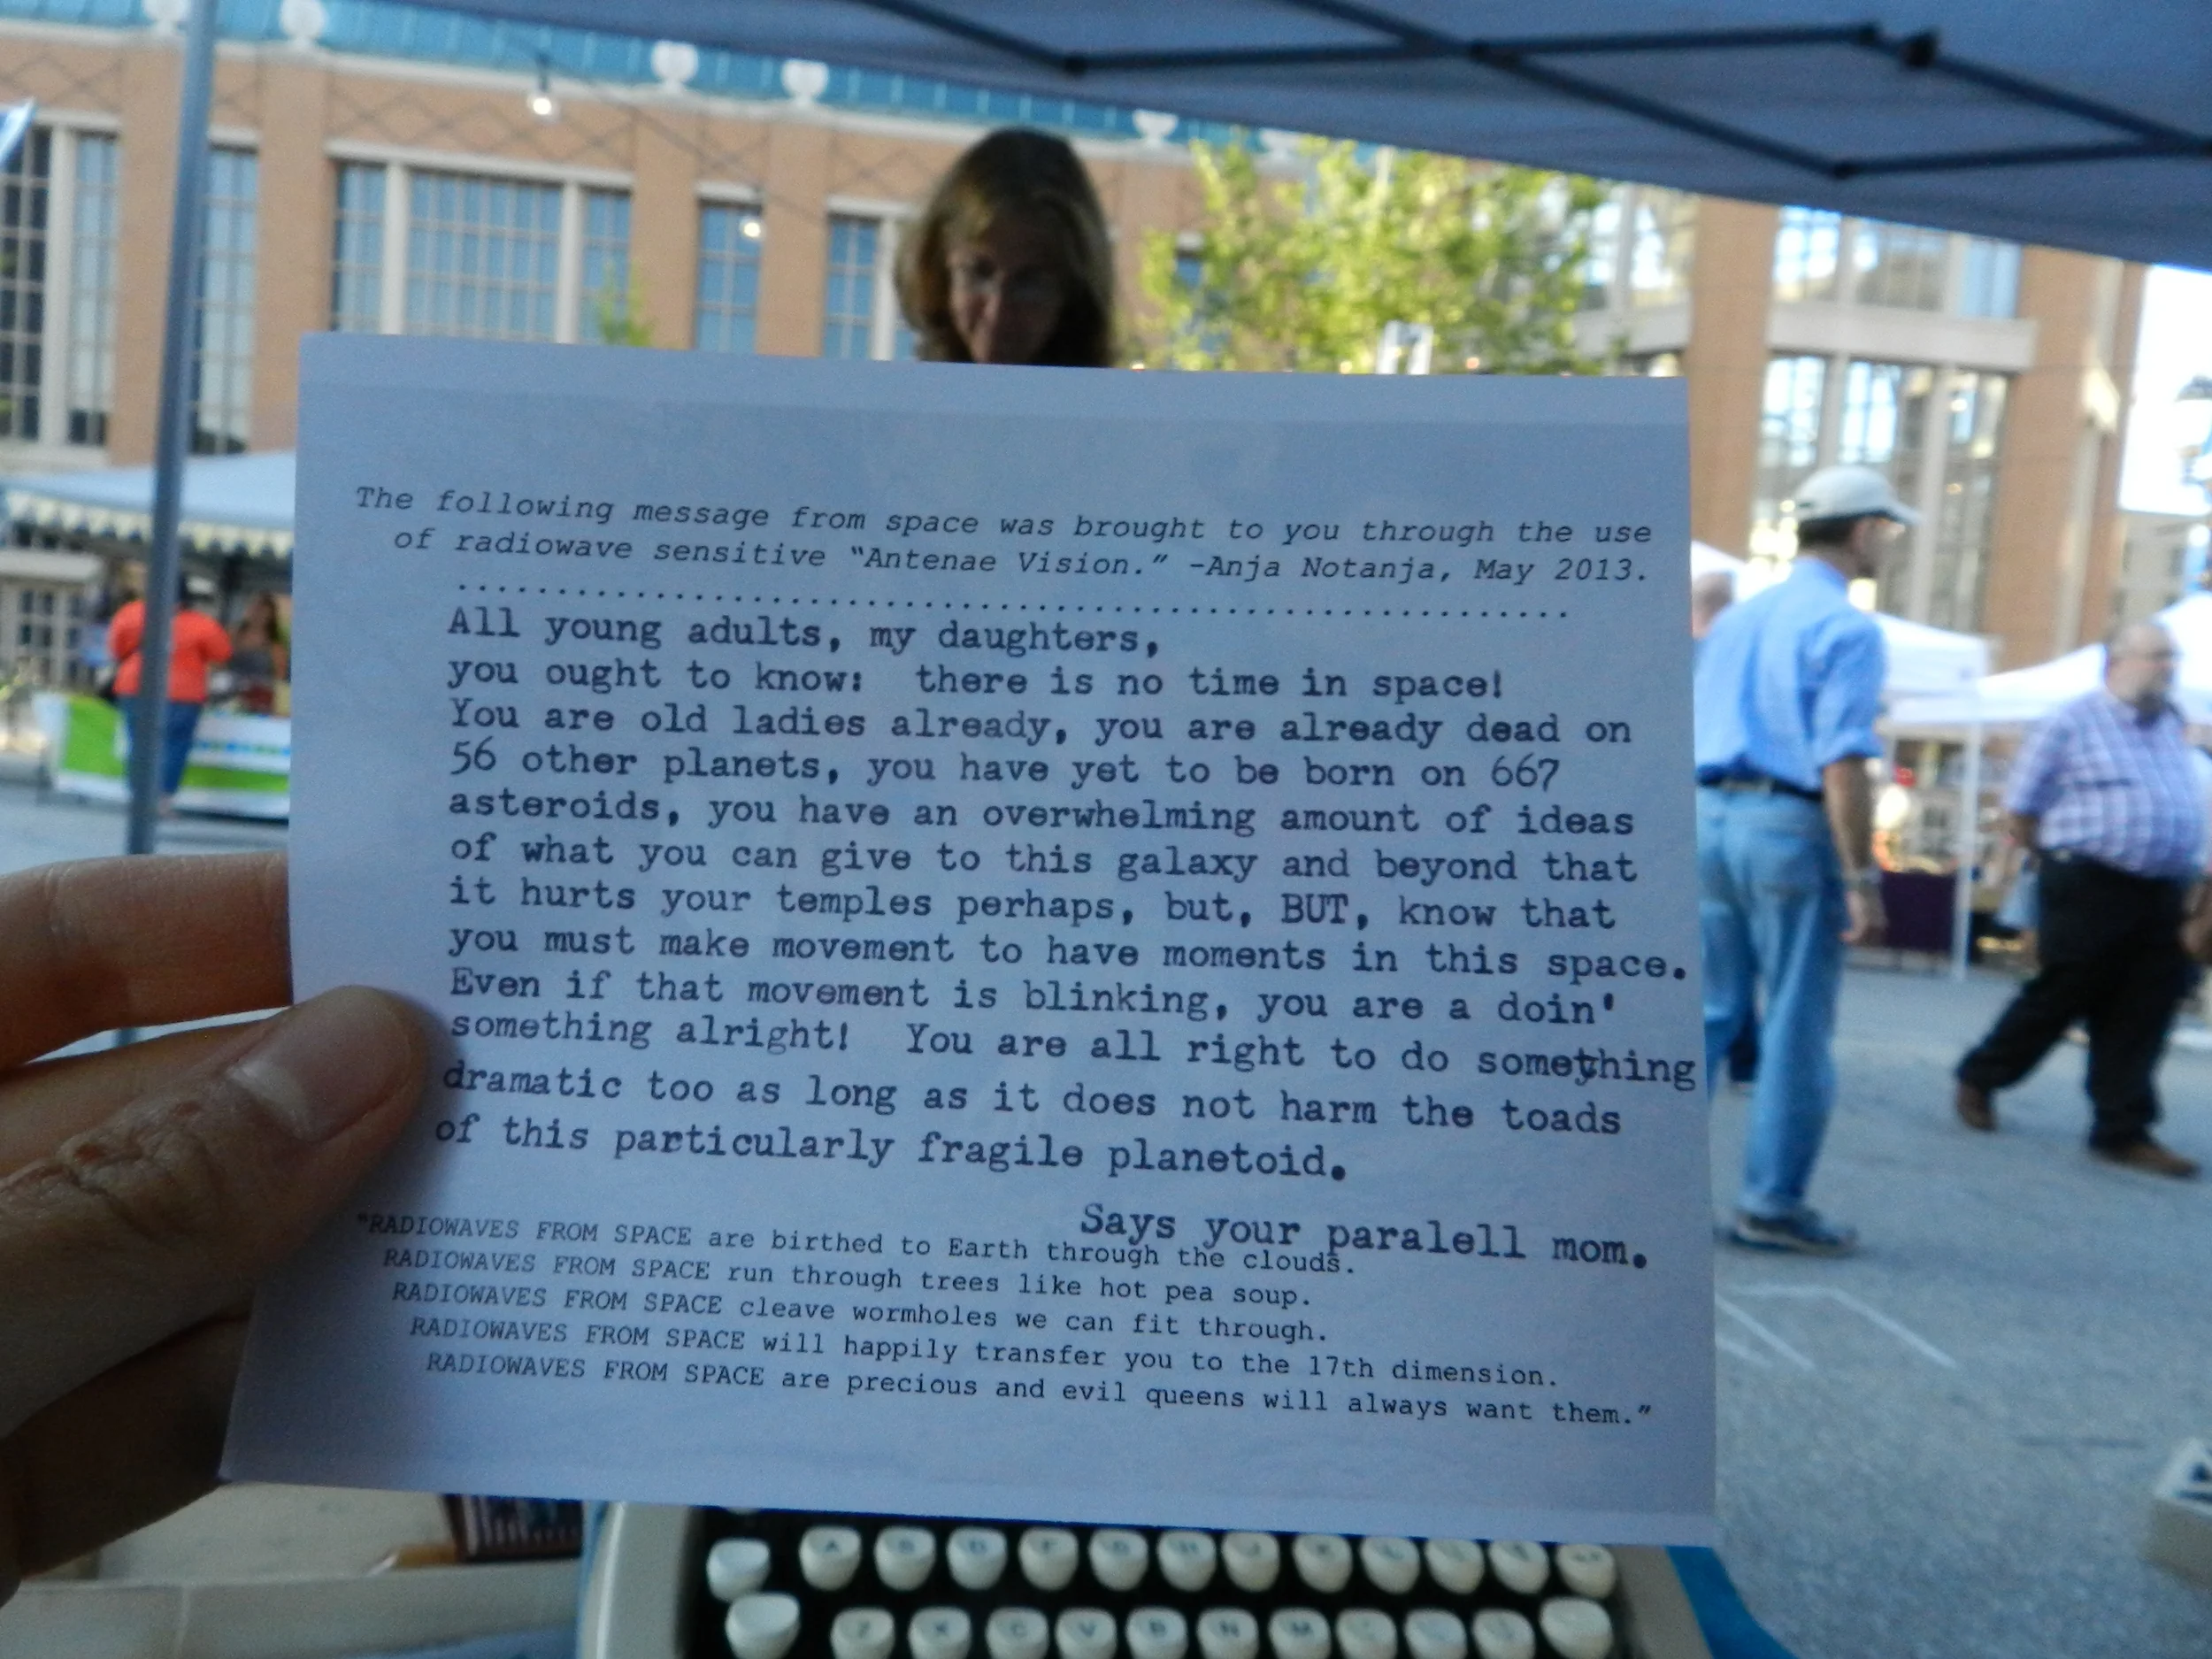 The following message from space was brought to you through the use
of radiowave sensitive “Antenae Vision.” -Anja Notanja, May 2013.
..........................................................
All young adults, my daughters,
you ought to know:  there is no time in space!
You are old ladies already, you are already dead on
56 other planets, you have yet to be born on 667
asteroids, you have an overwhelming amount of ideas
of what you can give to this galaxy and beyond that
it hurts your temples perhaps, but, BUT, know that
you must make movement to have moments in this space.
Even if that movement is blinking, you are a doin'
something alright!  You are all right to do something
dramatic too as long as it does not harm the toads
of this particularly fragile planetoid.
Says your paralell mom.
"RADIOWAVES FROM SPACE are birthed to Earth through the clouds.
RADIOWAVES FROM SPACE run through trees like hot pea soup.
RADIOWAVES FROM SPACE cleave wormholes we can fit through.
RADIOWAVES FROM SPACE will happily transfer you to the 17th dimension.
RADIOWAVES FROM SPACE are precious and evil queens will always want them.”
A S D F G H J K L
Z X C V B N M